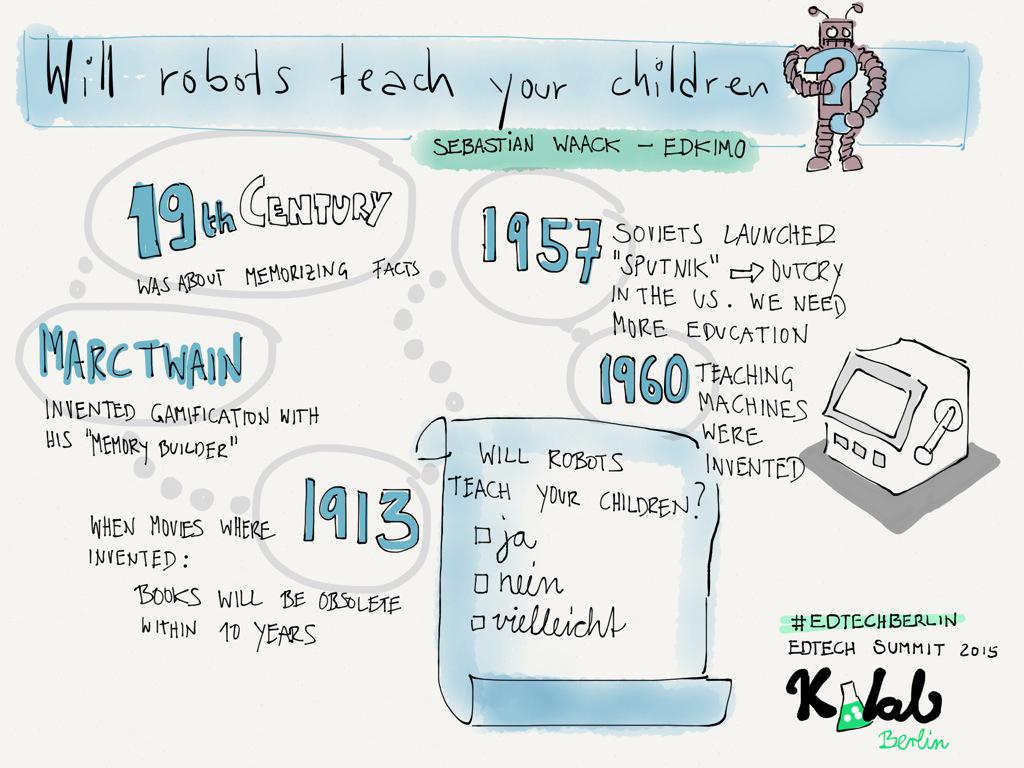 Will robots teach your children
?
SEBASTIAN WAACK – EDKIMO
19th CENTURY
WAS ABOUT MEMORIZING FACTS
MARC TWAIN
INVENTED GAMIFICATION WITH
HIS "MEMORY BUILDER"
1913
WHEN MOVIES WHERE
INVENTED:
BOOKS WILL BE OBSOLETE
WITHIN 10 YEARS
1957
SOVIETS LAUNCHED
"SPUTNIK" ⇨ OUTCRY
IN THE US. WE NEED
MORE EDUCATION
1960
TEACHING
MACHINES
WERE
INVENTED
WILL ROBOTS
TEACH YOUR CHILDREN?
□ ja
□ nein
□ vielleicht
#EDTECHBERLIN
EDTECH SUMMIT 2015
K lab
Berlin